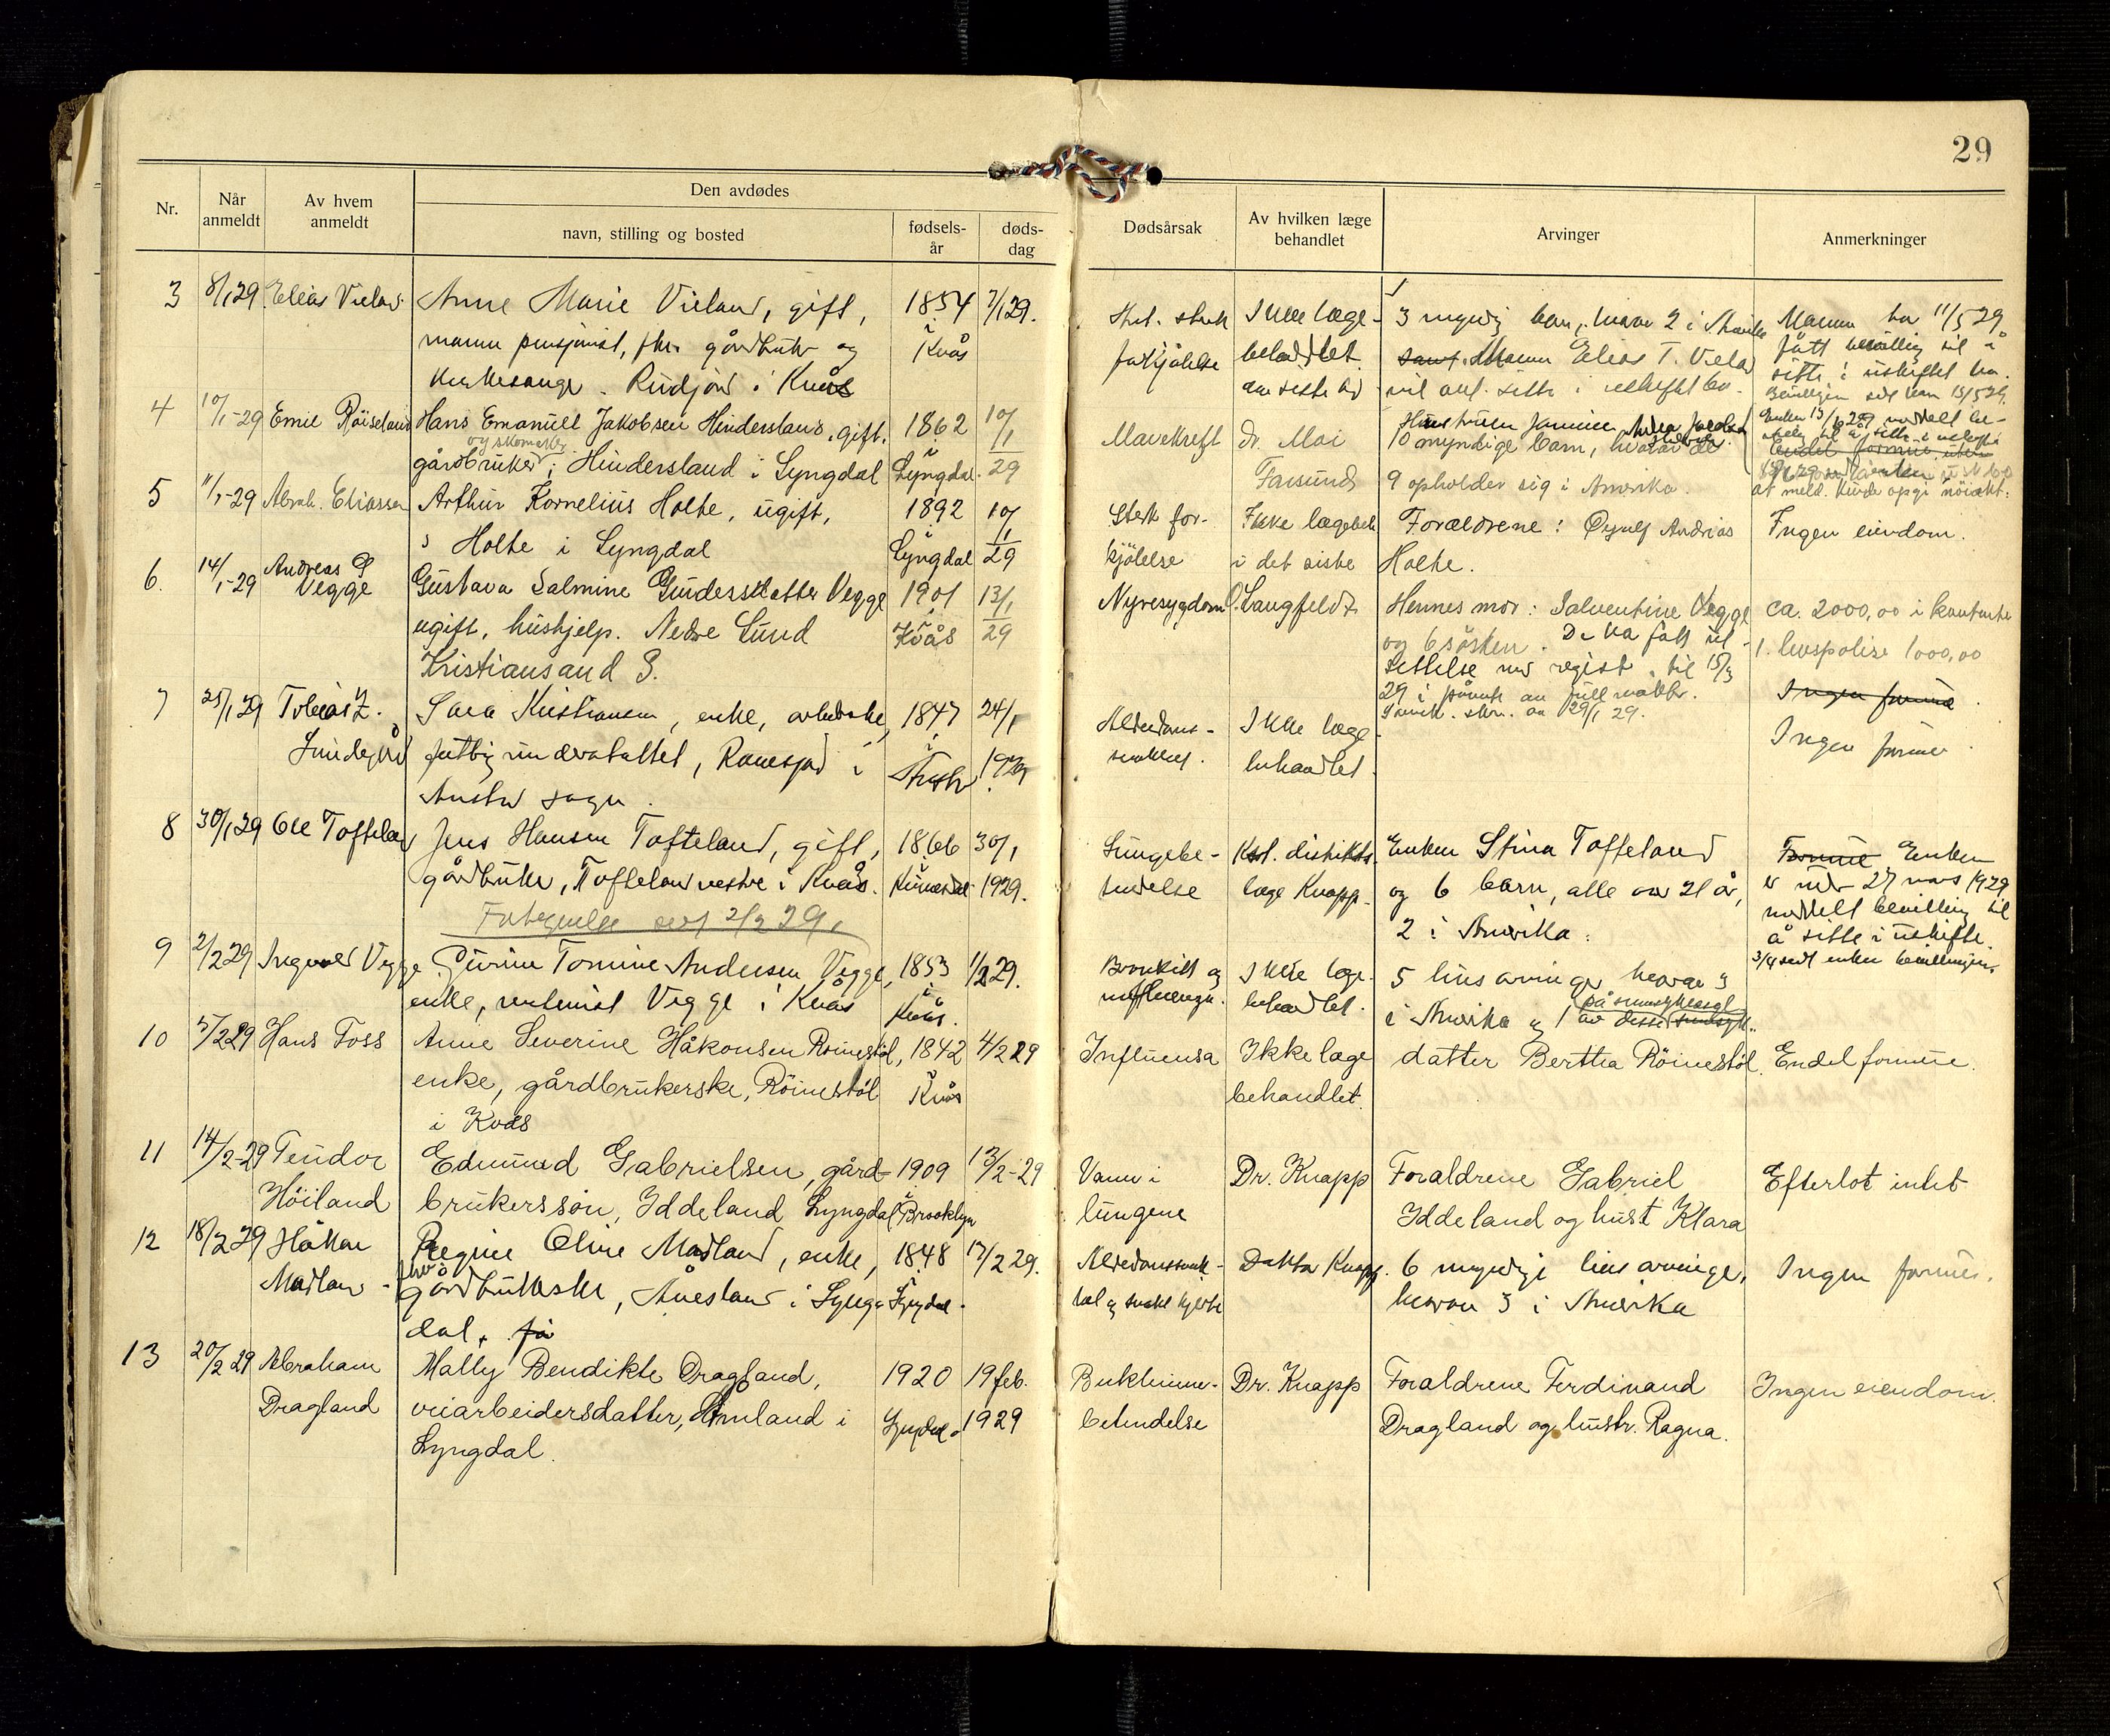 29
Nr.
Når anmeldt
Av hvem anmeldt
Den avdødes
navn, stilling og bosted
fødsels-år
døds-dag
Dødsårsak
Av hvilken læge behandlet
Arvinger
Anmerkninger
3 8/1 29. Elias Vieland
Anne Marie Vieland, gift, 1854 7/1 29.
mann pensjonist, gårdbruker og i Kvås
kirkesanger. Rudjord i Kvås
forkjølelse
Ikke læge-
behandlet
3 myndig barn, hvorav 2 i Amerika
Mann Elias T. Vieland
Mannen har 11/5 29
fått bevilling til å
sitte i uskiftet bo.
4 10/1-29 Emil Röiseland
Hans Emanuell Jakobsen Hindersland, gift. 1862 10/1 29
og skomaker
gårdbruker, Hindersland i Lyngdal i Lyngdal.
Mavekreft
dr. Moi
Farsund
10 myndige barn, hvorav de
9 opholder sig i Amerika.
5 11/1-29 Abrah. Eliassen
Arthur Kornelius Holte, ugift, 1892 10/1 29
Holte i Lyngdal i Lyngdal
Sterk for-
kjölelse
Ikke lægebeh
i det siste
Forældrene: Andrias
Holte.
Ingen eiendom.
6. 14/1-29 Andreas G Vegge
Gustava Salmine Gundersdatter Vegge 1901 13/1 29
ugift, hushjelp. Nedre Lund i Kvås
Kristiansand S.
Nyresygdom
Langfeldt
Hennes mor: Salventine Vegge
og 6 søsken. De har fått ut-
settelse med regist. til 15/3
29 i påvente av fullmakter.
ca. 2000,00 i kontanter
1. livspolise 1000,00
7 25/1 29 Tobias Z.
Sara Kristiansen, enke, 1847 24/1 1929
fattigunderstøttet, i
Austad sogn.
Alderdoms-
svakhet.
Ikke læge
behandlet.
Ingen formue
Ingen formue.
8 30/1 29 Ole Tofteland
Jens Hansen Tofteland, gift, 1866 30/1
gårdbruker, Tofteland vestre i Kvås. 1929.
2/2 29.
Lungebe-
tendelse
Kst. distrikts
læge Knapp.
Enken Stina Tofteland
og 6 barn, alle over 21 år,
2 i Amerika.
Formue Enken
er under 27 mars 1929
meddelt bevilling til
å sitte i uskifte.
3/4 sendt enken bevillingen.
9 2/2 29 Ingvald Vegge
Gurine Tomine Andersen Vegge, 1853 1/2 29.
enke, Vegge i Kvås i Kvås.
Bronkitt og
influenza.
Ikke læge-
behandlet.
5 livsarvinger hvorav 3
i Amerika og 1 av disse
10 5/2 29 Hans Foss
Anne Severine Håkonsen Röinestöl, 1842 4/2 29
enke, gårdbrukerske, Röinestöl i Kvås
i Kvås
Influensa
Ikke læge
behandlet.
datter Bertha Röinestöl.
Endel formue.
11 14/2-29 Teudor
Höiland
Edmund Gabrielsen, gård- 1909 13/2-29
brukerssön, Iddeland Lyngdal i Brooklyn
Vann i
lungene
Dr. Knapp
Foraldrene Gabriel
Iddeland og hust Klara
Efterlot intet
12 18/2 29 Håkon
Madland
Regine Oline Madland, enke, 1848 17/2 29.
fhv. gårdbrukerske, Åmesland i Lyng- i Lyngdal.
dal. på
og svakt hjerte
Doktor Knapp.
6 myndige livsarvinger,
hvorav 3 i Amerika
Ingen formue.
13 20/2 29 Abraham
Dragland
Mally Bendikte Dragland, 1920 19 feb.
veiarbeidersdatter, Åmland i Lyngdal. 1929
Lyngdal.
Bukhinne-
betendelse
Dr. Knapp
Foraldrene Ferdinand
Dragland og hustr. Ragna.
Ingen eiendom.